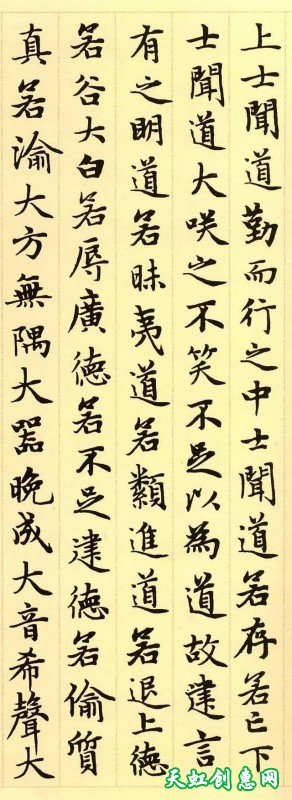 上士聞道勤而行之中士聞道若存若亡下
士聞道大咲之不笑不足以為道故建言
有之明道若昧夷道若類進道若退上德
若谷大白若辱廣德若不足建德若偷質
真若渝大方無隅大器晚成大音希聲大
天虹创惠网